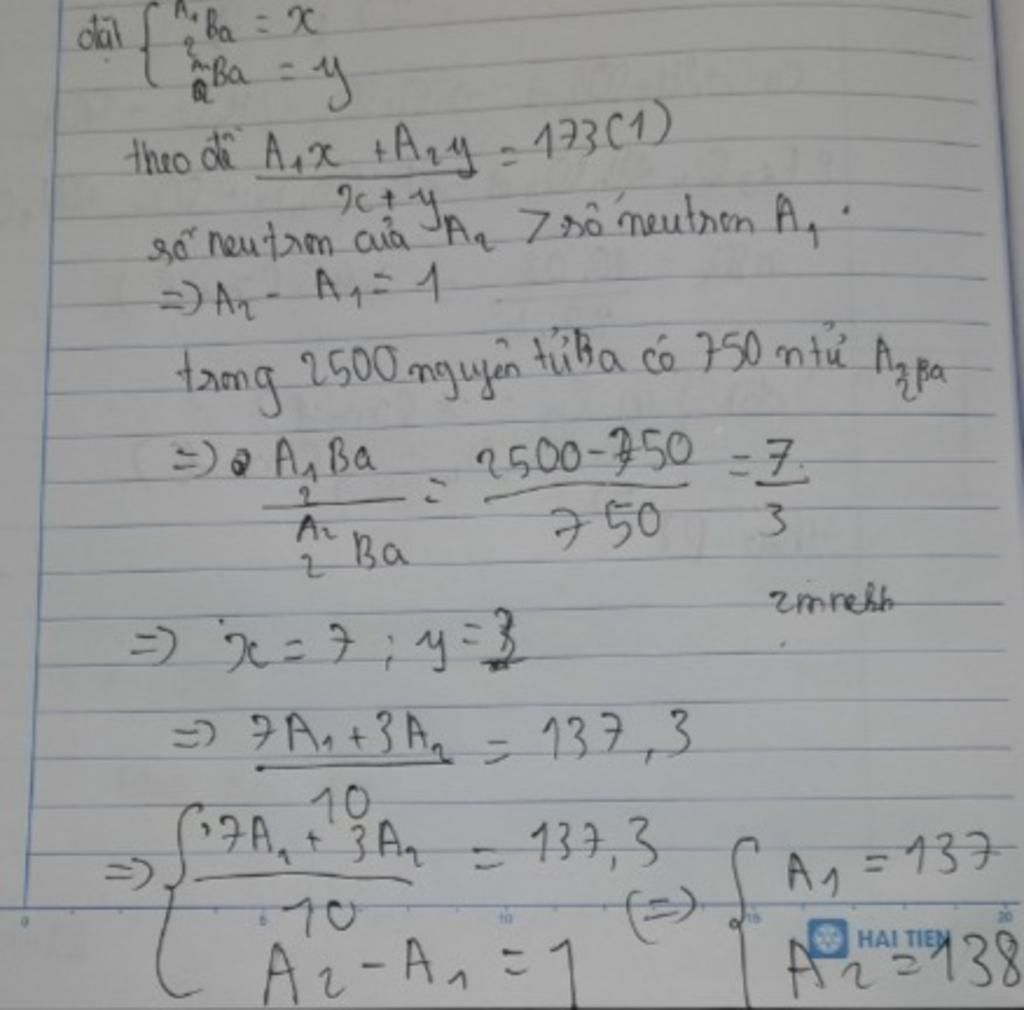 đặt { A₁ ₂Ba = x
Ba = y
theo đề (A₁x + A₂y)/(x + y) = 173 (1)
số neutron của A₂ > số neutron A₁.
=> A₂ - A₁ = 1
trong 2500 nguyên tử Ba có 750 ntử A₂ ₂Ba
=> A₁ ₂Ba / A₂ ₂Ba = (2500-750)/750 = 7/3
=> x = 7 ; y = 3
=> (7A₁ + 3A₂)/10 = 137,3
=> { (7A₁ + 3A₂)/10 = 137,3 (=) { A₁ = 137
A₂ - A₁ = 1 A₂ = 138
0 5 10 15 20
HAI TIEN